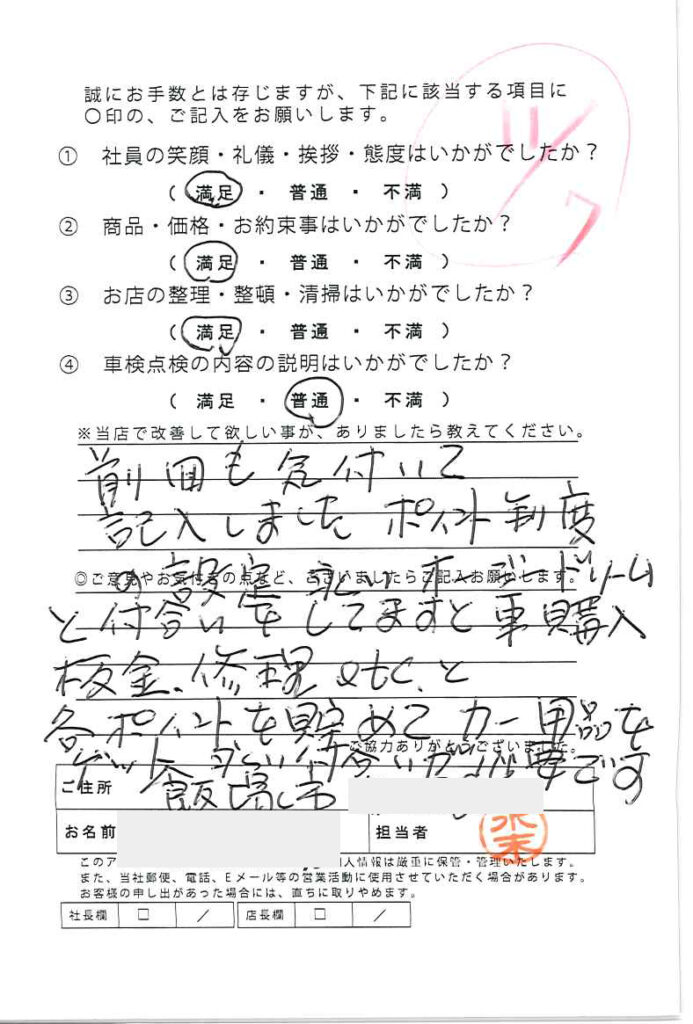 誠にお手数とは存じますが、下記に該当する項目に
〇印の、ご記入をお願いします。
① 社員の笑顔・礼儀・挨拶・態度はいかがでしたか？
( 満足 ・ 普通 ・ 不満 )
② 商品・価格・お約束事はいかがでしたか？
( 満足 ・ 普通 ・ 不満 )
③ お店の整理・整頓・清掃はいかがでしたか？
( 満足 ・ 普通 ・ 不満 )
④ 車検点検の内容の説明はいかがでしたか？
( 満足 ・ 普通 ・ 不満 )
※当店で改善して欲しい事が、ありましたら教えてください。
前回も気付いて
記入しました ポイント制度
◎ご意見やお気付きの点など、ございましたらご記入お願いします。
の設定 長い オートドリーム
と付合いをしてますと車購入
板金、修理 etc. と
各ポイントを貯めて カー用品を
ご協力ありがとうございました。
ゲット 長い付合いが です
ご住所 飯塚市
お名前 担当者
このア 人情報は厳重に保管・管理いたします。
また、当社郵便、電話、Eメール等の営業活動に使用させていただく場合があります。
お客様の申し出があった場合には、直ちに取りやめます。
社長欄 □ / 店長欄 □ /